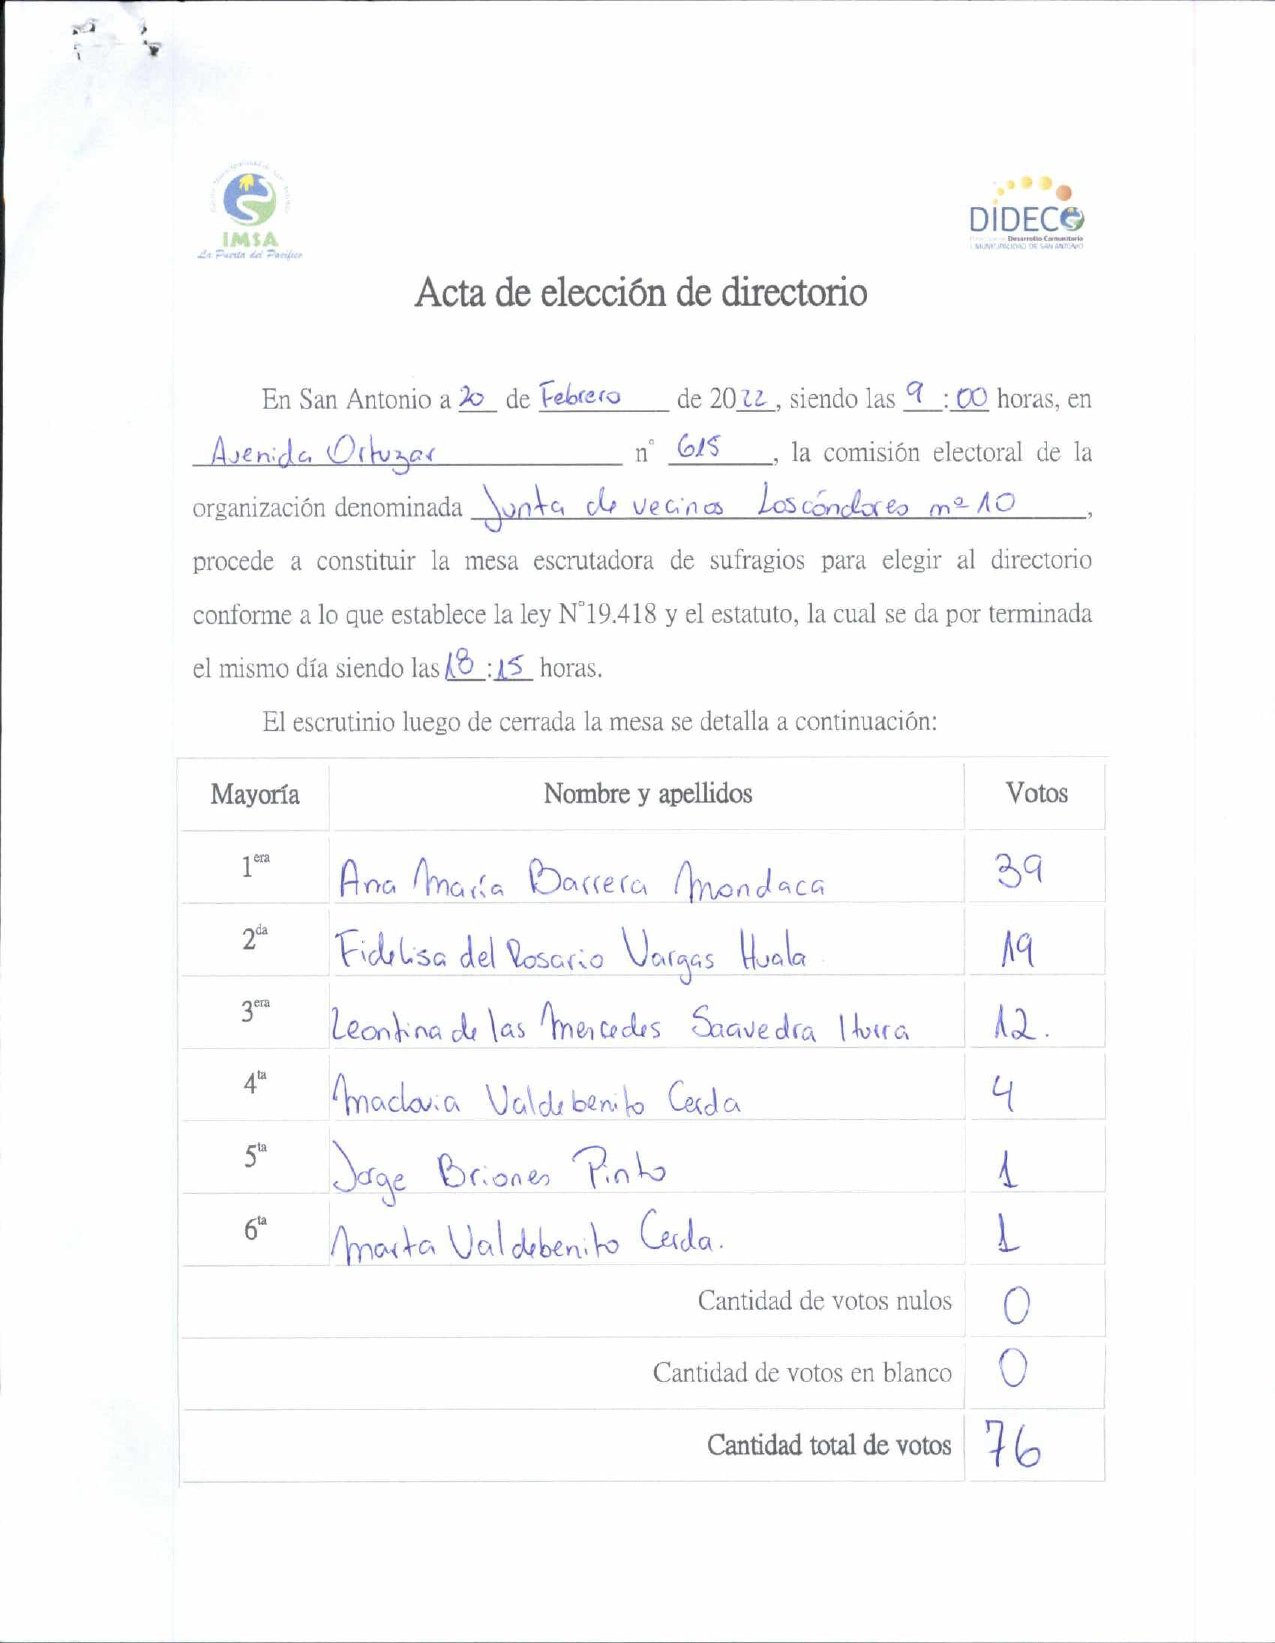 IMSA
La Puerta del Pacífico
DIDECO
Desarrollo Comunitario
MUNICIPALIDAD DE SAN ANTONIO
Acta de elección de directorio
En San Antonio a 20 de Febrero de 2022, siendo las 9:00 horas, en
Avenida Ortuzar n° 615, la comisión electoral de la
organización denominada Junta de vecinos Los cóndores nº 10,
procede a constituir la mesa escrutadora de sufragios para elegir al directorio
conforme a lo que establece la ley N°19.418 y el estatuto, la cual se da por terminada
el mismo día siendo las 18:15 horas.
El escrutinio luego de cerrada la mesa se detalla a continuación:
Mayoría Nombre y apellidos Votos
1era Ana María Barrera Mondaca 39
2da Fidelisa del Rosario Vargas Huala 19
3era Leontina de las Mercedes Saavedra 12.
4ta Maclovia Valdebenito Cerda 4
5ta Jorge Briones Pinto 1
6ta Marta Valdebenito Cerda. 1
Cantidad de votos nulos 0
Cantidad de votos en blanco 0
Cantidad total de votos 76